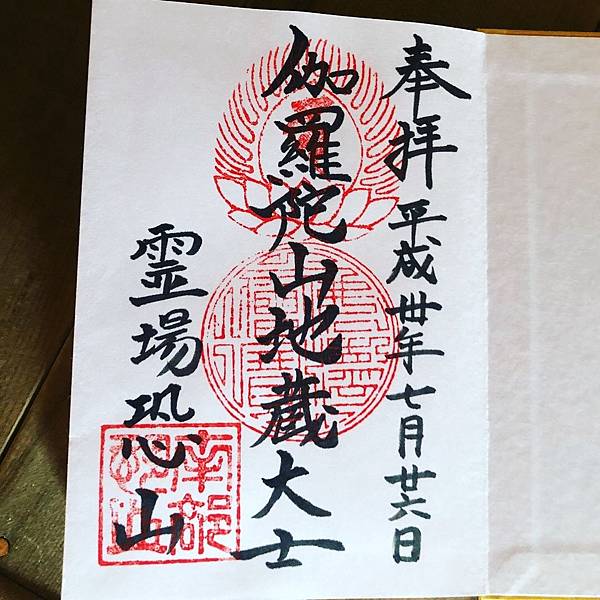 奉拝 平成卅年七月廿六日
伽羅陀山地蔵大士
霊場恐山